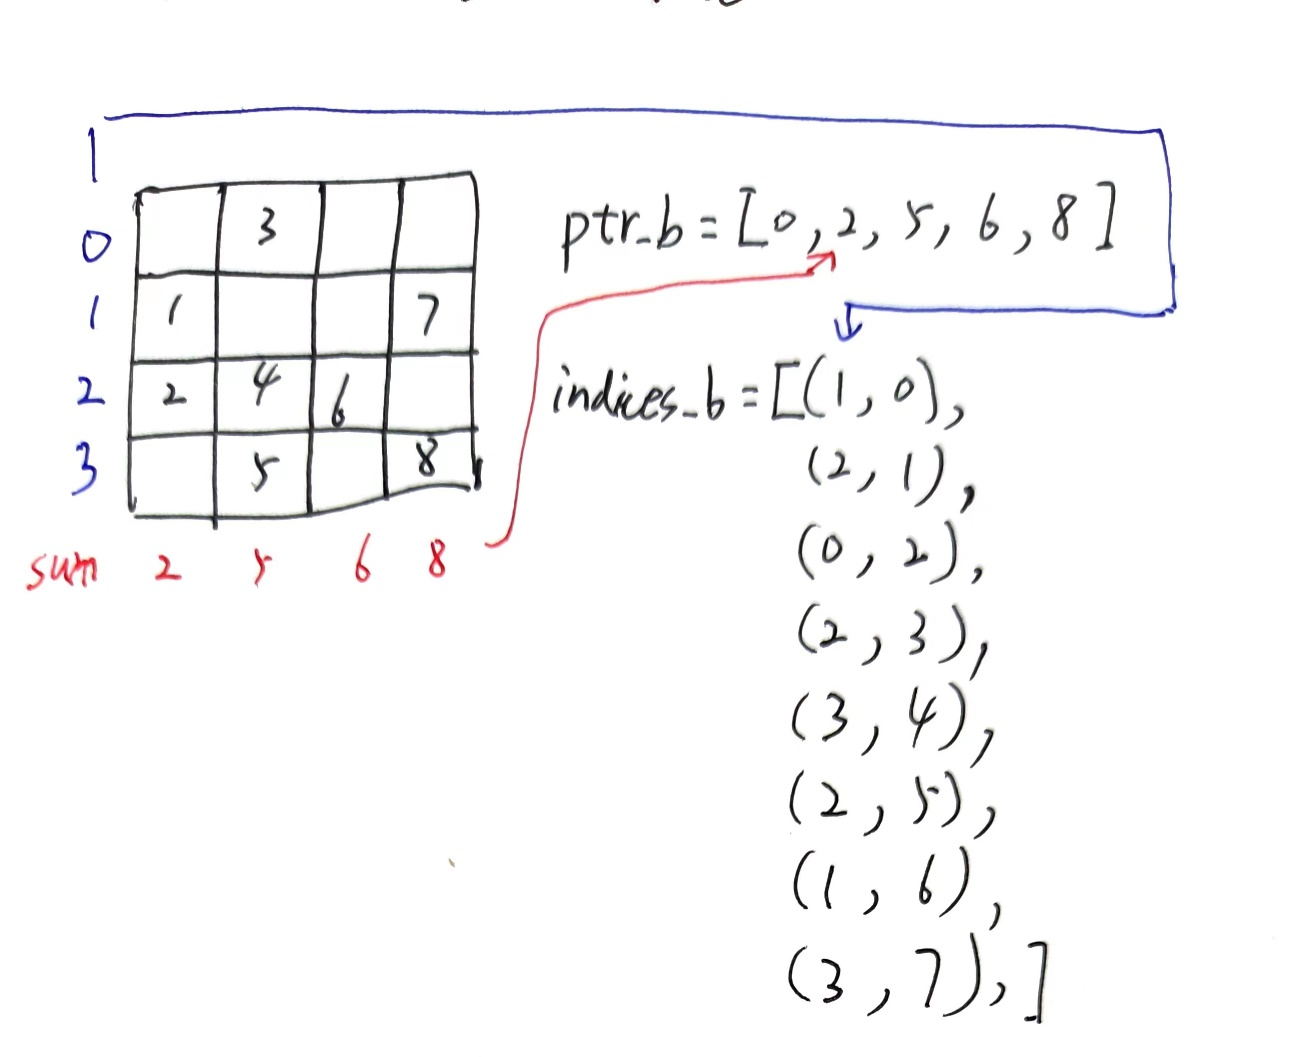 1
0 3
1 1 7
2 2 4 6
3 5 8
sum 2 5 6 8
ptr_b = [0, 2, 5, 6, 8]
indices_b = [(1, 0),
(2, 1),
(0, 2),
(2, 3),
(3, 4),
(2, 5),
(1, 6),
(3, 7),]